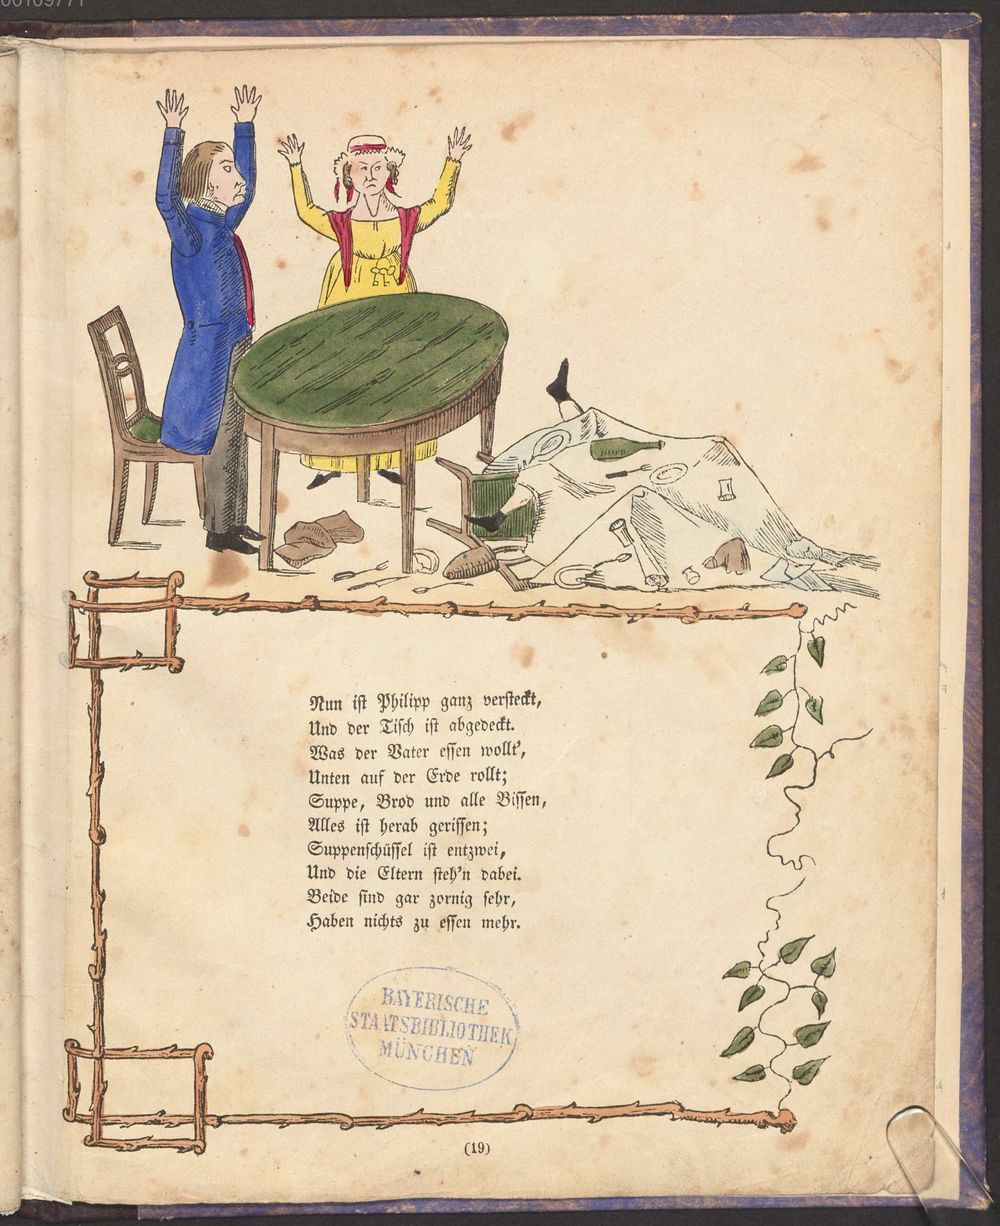 00109771
Nun ist Philipp ganz versteckt,
Und der Tisch ist abgedeckt.
Was der Vater essen wollt',
Unten auf der Erde rollt;
Suppe, Brod und alle Bissen,
Alles ist herab gerissen;
Suppenschüssel ist entzwei,
Und die Eltern steh'n dabei.
Beide sind gar zornig sehr,
Haben nichts zu essen mehr.
BAYERISCHE
STAATSBIBLIOTHEK
MÜNCHEN
(19)